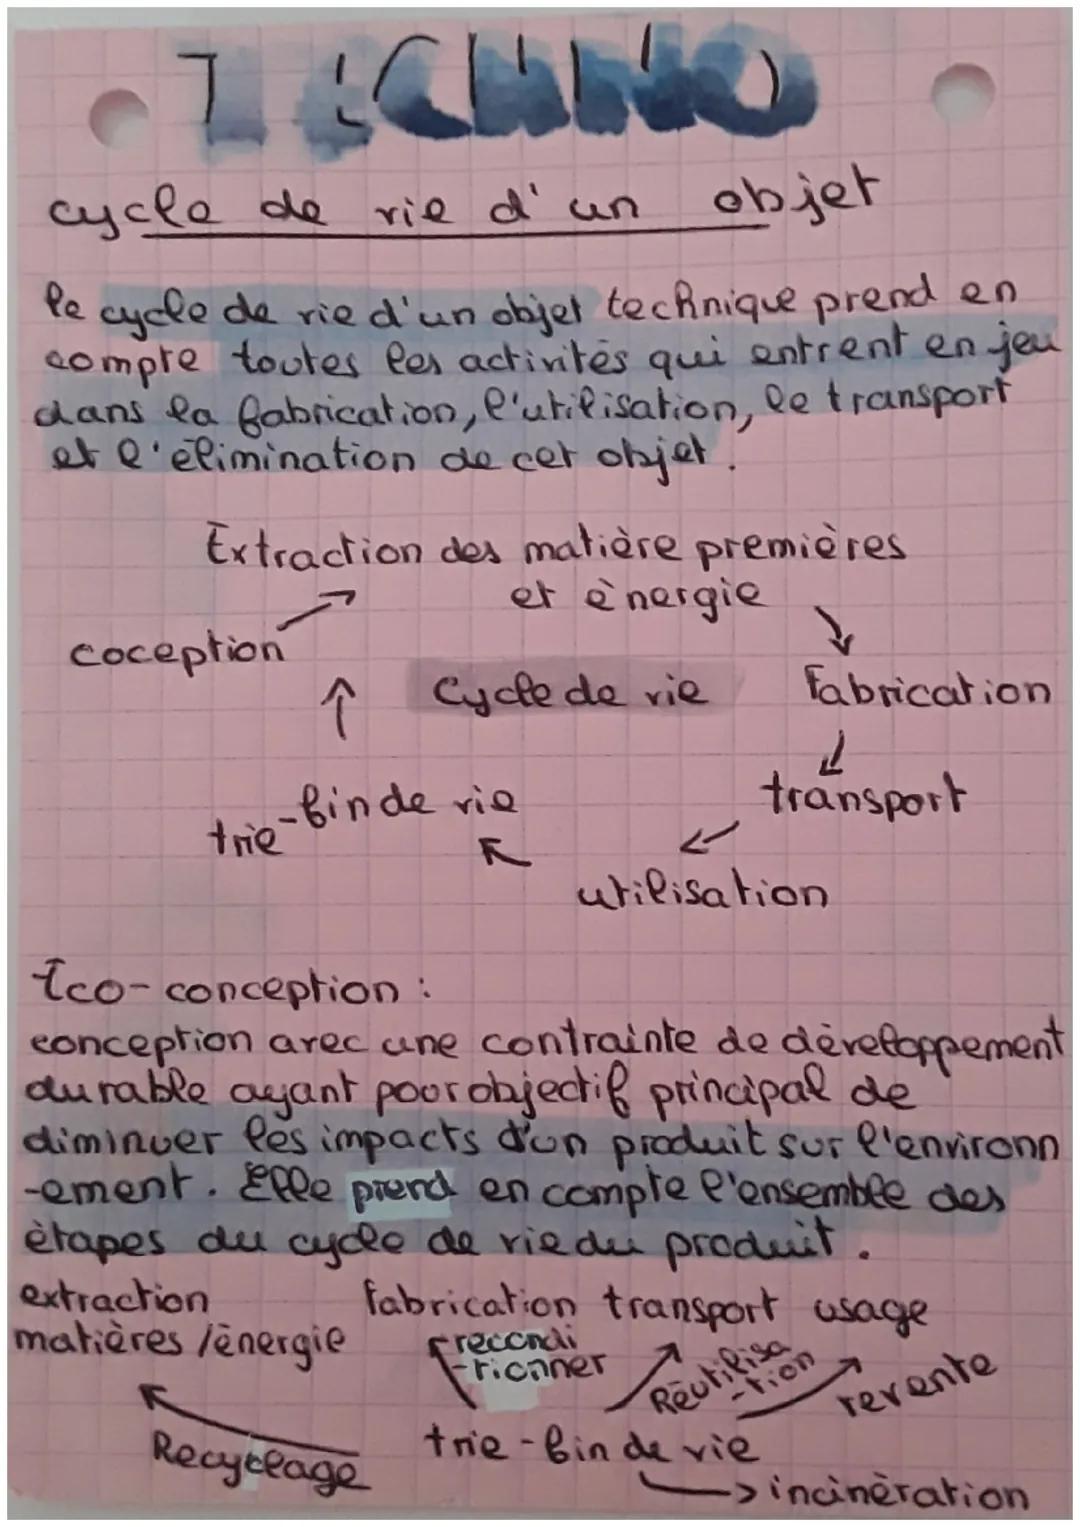 TECHNO
cycle de vie d'un objet
le cycle de vie d'un objet technique prend en
compte toutes les activités qui entrent en jeu
dans la fabrication, l'utilisation, le transport
et l'élimination de cet objet.
Extraction des matière premières
et ènergie
coception
Cycle de vie
Fabrication
transport
trie-fin de vie
utilisation
Eco-conception :
conception avec une contrainte de dèveloppement
durable ayant pour objectif principal de
diminuer les impacts d'un produit sur l'environn
-ement. Elle prend en compte l'ensemble des
ètapes du cycle de vie du produit.
extraction fabrication transport usage
matières /ènergie
recondi
-tionner
Réutilisa
-tion
revente
trie-fin de vie
Recyclage
incinèration